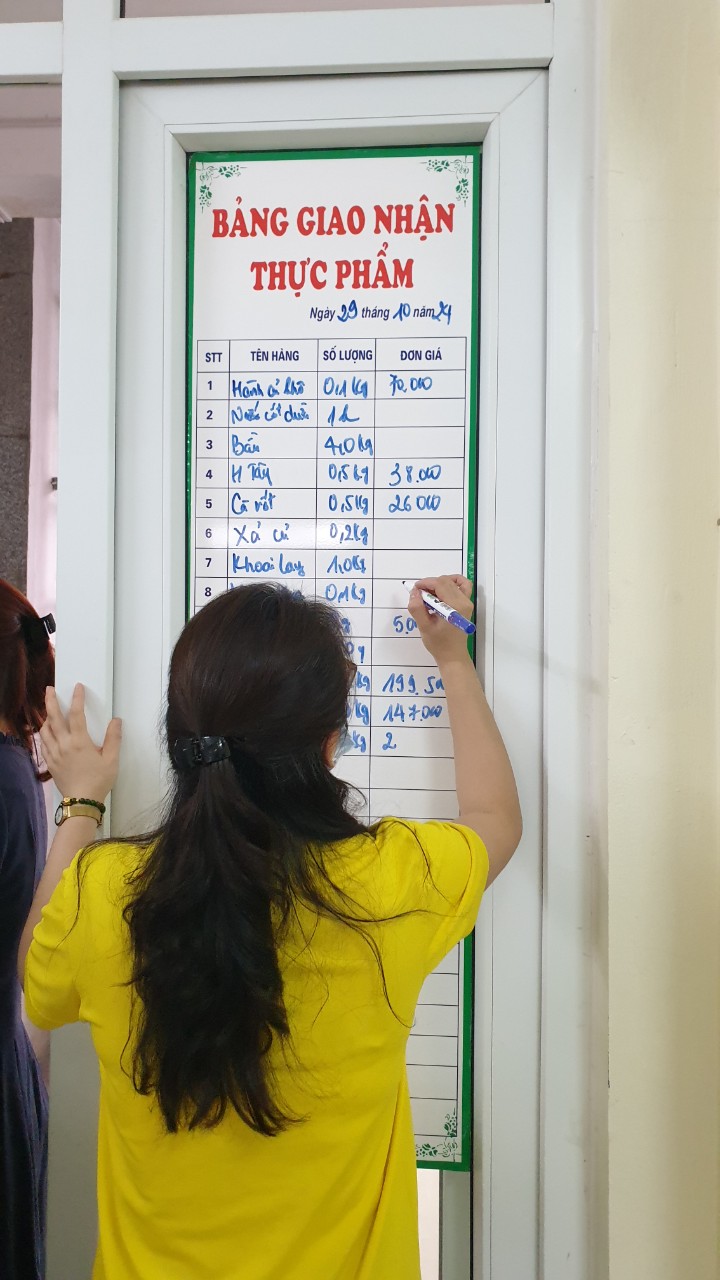 BẢNG GIAO NHẬN
THỰC PHẨM
Ngày 29 tháng 10 năm 24
STT TÊN HÀNG SỐ LƯỢNG ĐƠN GIÁ
1 Hành củ khô 0,1 kg 70.000
2 Nước cốt dừa 1
3 4,0 kg
4 H Tây 0,5 kg 38.000
5 Cà rốt 0,5 kg 26 000
6 Xả củ 0,2 kg
7 Khoai lang 1,0 kg
8 0,1 kg
5.0
kg 199.50
kg 147.000
kg 2